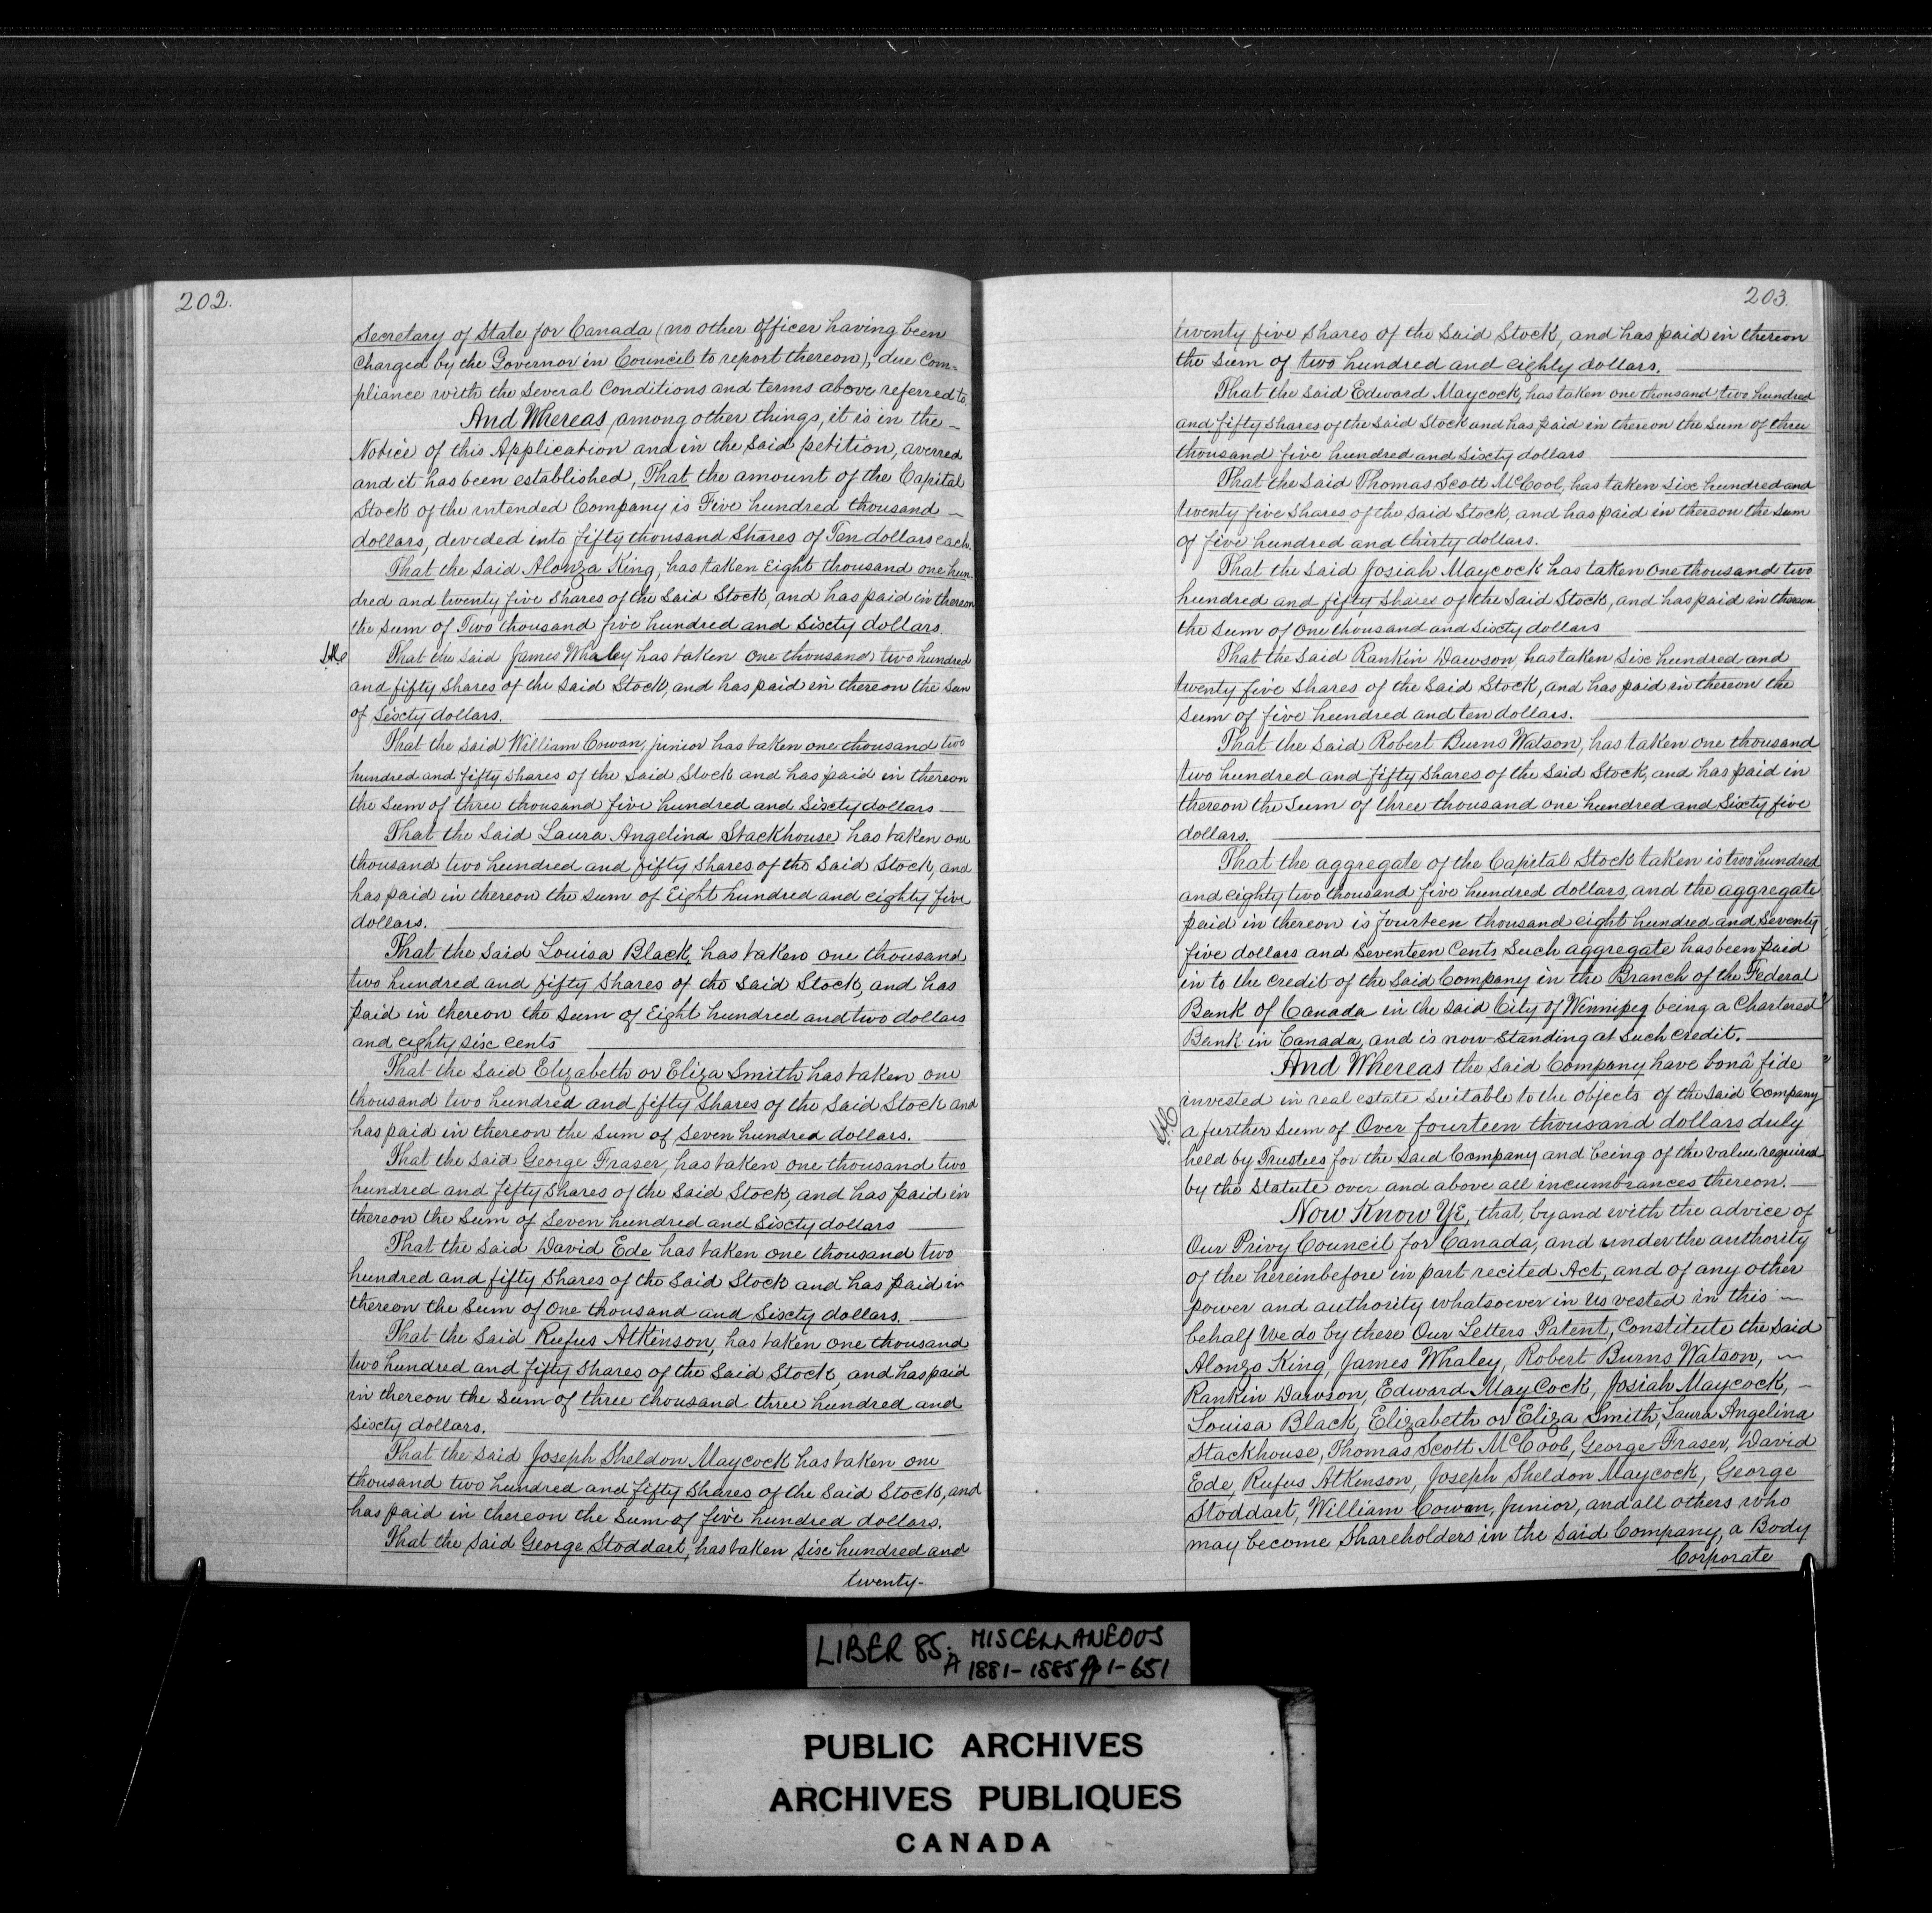 202.
Secretary of State for Canada (no other Officer having been
Charged by the Governor in Council to report thereon), due Com-
pliance with the Several Conditions and terms above referred to,
And Whereas among other things, it is in the –
Notice of this Application and in the said petition, averred
and it has been established, That the amount of the Capital
Stock of the intended Company is Five hundred thousand –
dollars, devided into fifty thousand Shares of Ten dollars each.
That the said Alonza King, has taken Eight thousand one hun-
dred and twenty five shares of the Said Stock, and has paid in thereon
the Sum of Two thousand five hundred and sixty dollars.
That the said James Whaley has taken one thousand two hundred
and fifty shares of the said Stock, and has paid in thereon the Sum
of sixty dollars.
That the said William Cowan, junior has taken one thousand two
hundred and fifty shares of the said Stock and has paid in thereon
the sum of three thousand five hundred and sixty dollars
That the said Laura Angelina Stackhouse has taken one
thousand two hundred and fifty shares of the said Stock, and
has paid in thereon the sum of Eight hundred and eighty five
dollars.
That the said Louisa Black, has taken one thousand
two hundred and fifty shares of the said Stock, and has
paid in thereon the sum of Eight hundred and two dollars
and eighty six cents
That the said Elizabeth or Eliza Smith has taken one
thousand two hundred and fifty shares of the said Stock and
has paid in thereon the sum of seven hundred dollars.
That the said George Fraser, has taken one thousand two
hundred and fifty shares of the said Stock, and has paid in
thereon the sum of seven hundred and sixty dollars
That the said David Ede has taken one thousand two
hundred and fifty shares of the said Stock and has paid in
thereon the sum of one thousand and sixty dollars.
That the said Rufus Atkinson, has taken one thousand
two hundred and fifty shares of the said Stock, and has paid
in thereon the sum of three thousand three hundred and
sixty dollars.
That the said Joseph Sheldon Maycock has taken one
thousand two hundred and fifty shares of the said Stock, and
has paid in thereon the sum of five hundred dollars.
That the said George Stoddart, has taken six hundred and
twenty-
203.
twenty five shares of the said Stock, and has paid in thereon
the sum of two hundred and eighty dollars.
That the said Edward Maycock, has taken one thousand two hundred
and fifty shares of the said Stock and has paid in thereon the sum of three
thousand five hundred and sixty dollars
That the said Thomas Scott McCool, has taken six hundred and
twenty five shares of the said Stock, and has paid in thereon the sum
of five hundred and thirty dollars.
That the said Josiah Maycock has taken one thousand two
hundred and fifty shares of the said Stock, and has paid in thereon
the sum of one thousand and sixty dollars
That the said Rankin Dawson has taken six hundred and
twenty five shares of the said Stock, and has paid in thereon the
sum of five hundred and ten dollars.
That the said Robert Burns Watson, has taken one thousand
two hundred and fifty shares of the said Stock, and has paid in
thereon the sum of three thousand one hundred and sixty five
dollars.
That the aggregate of the Capital Stock taken is two hundred
and eighty two thousand five hundred dollars, and the aggregate
paid in thereon is fourteen thousand eight hundred and seventy
five dollars and seventeen cents Such aggregate has been paid
in to the credit of the said Company in the Branch of the Federal
Bank of Canada in the said City of Winnipeg being a Chartered
Bank in Canada, and is now standing at such credit.
And Whereas the said Company have bonâ fide
invested in real estate suitable to the objects of the said Company
a further sum of Over fourteen thousand dollars duly
held by Trustees for the said Company and being of the value required
by the Statute over and above all incumbrances thereon.
Now Know Ye, that, by and with the advice of
Our Privy Council for Canada, and under the authority
of the hereinbefore in part recited Act, and of any other
power and authority whatsoever in us vested in this –
behalf We do by these Our Letters Patent, Constitute the said
Alonzo King, James Whaley, Robert Burns Watson, –
Rankin Dawson, Edward MayCock, Josiah Maycock, –
Louisa Black, Elizabeth or Eliza Smith, Laura Angelina
Stackhouse, Thomas Scott McCool, George Fraser, David
Ede, Rufus Atkinson, Joseph Sheldon Maycock, George
Stoddart, William Cowan, Junior, and all others who
may become Shareholders in the said Company, a Body
Corporate
LIBER 85. A MISCELLANEOUS
1881-1885 pp 1-651
PUBLIC ARCHIVES
ARCHIVES PUBLIQUES
CANADA